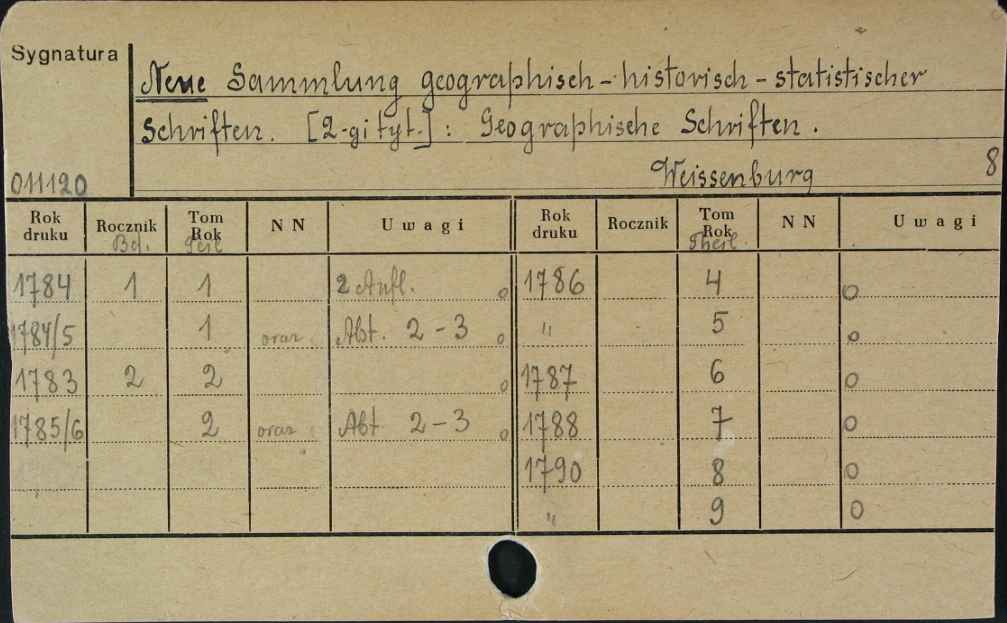 Sygnatura
Neue Sammlung geographisch-historisch-statistischer
Schriften. [2-gi tyt.]: Geographische Schriften.
Weissenburg 8
011120
Rok druku Rocznik Bd. Tom Rok Teil NN Uwagi Rok druku Rocznik Tom Rok Theil. NN Uwagi
1784 1 1 2 Aufl. o 1786 4 o
1784/5 1 oraz Abt. 2-3 o " 5 o
1783 2 2 o 1787 6 o
1785/6 2 oraz Abt 2-3 o 1788 7 o
1790 8 o
" 9 o